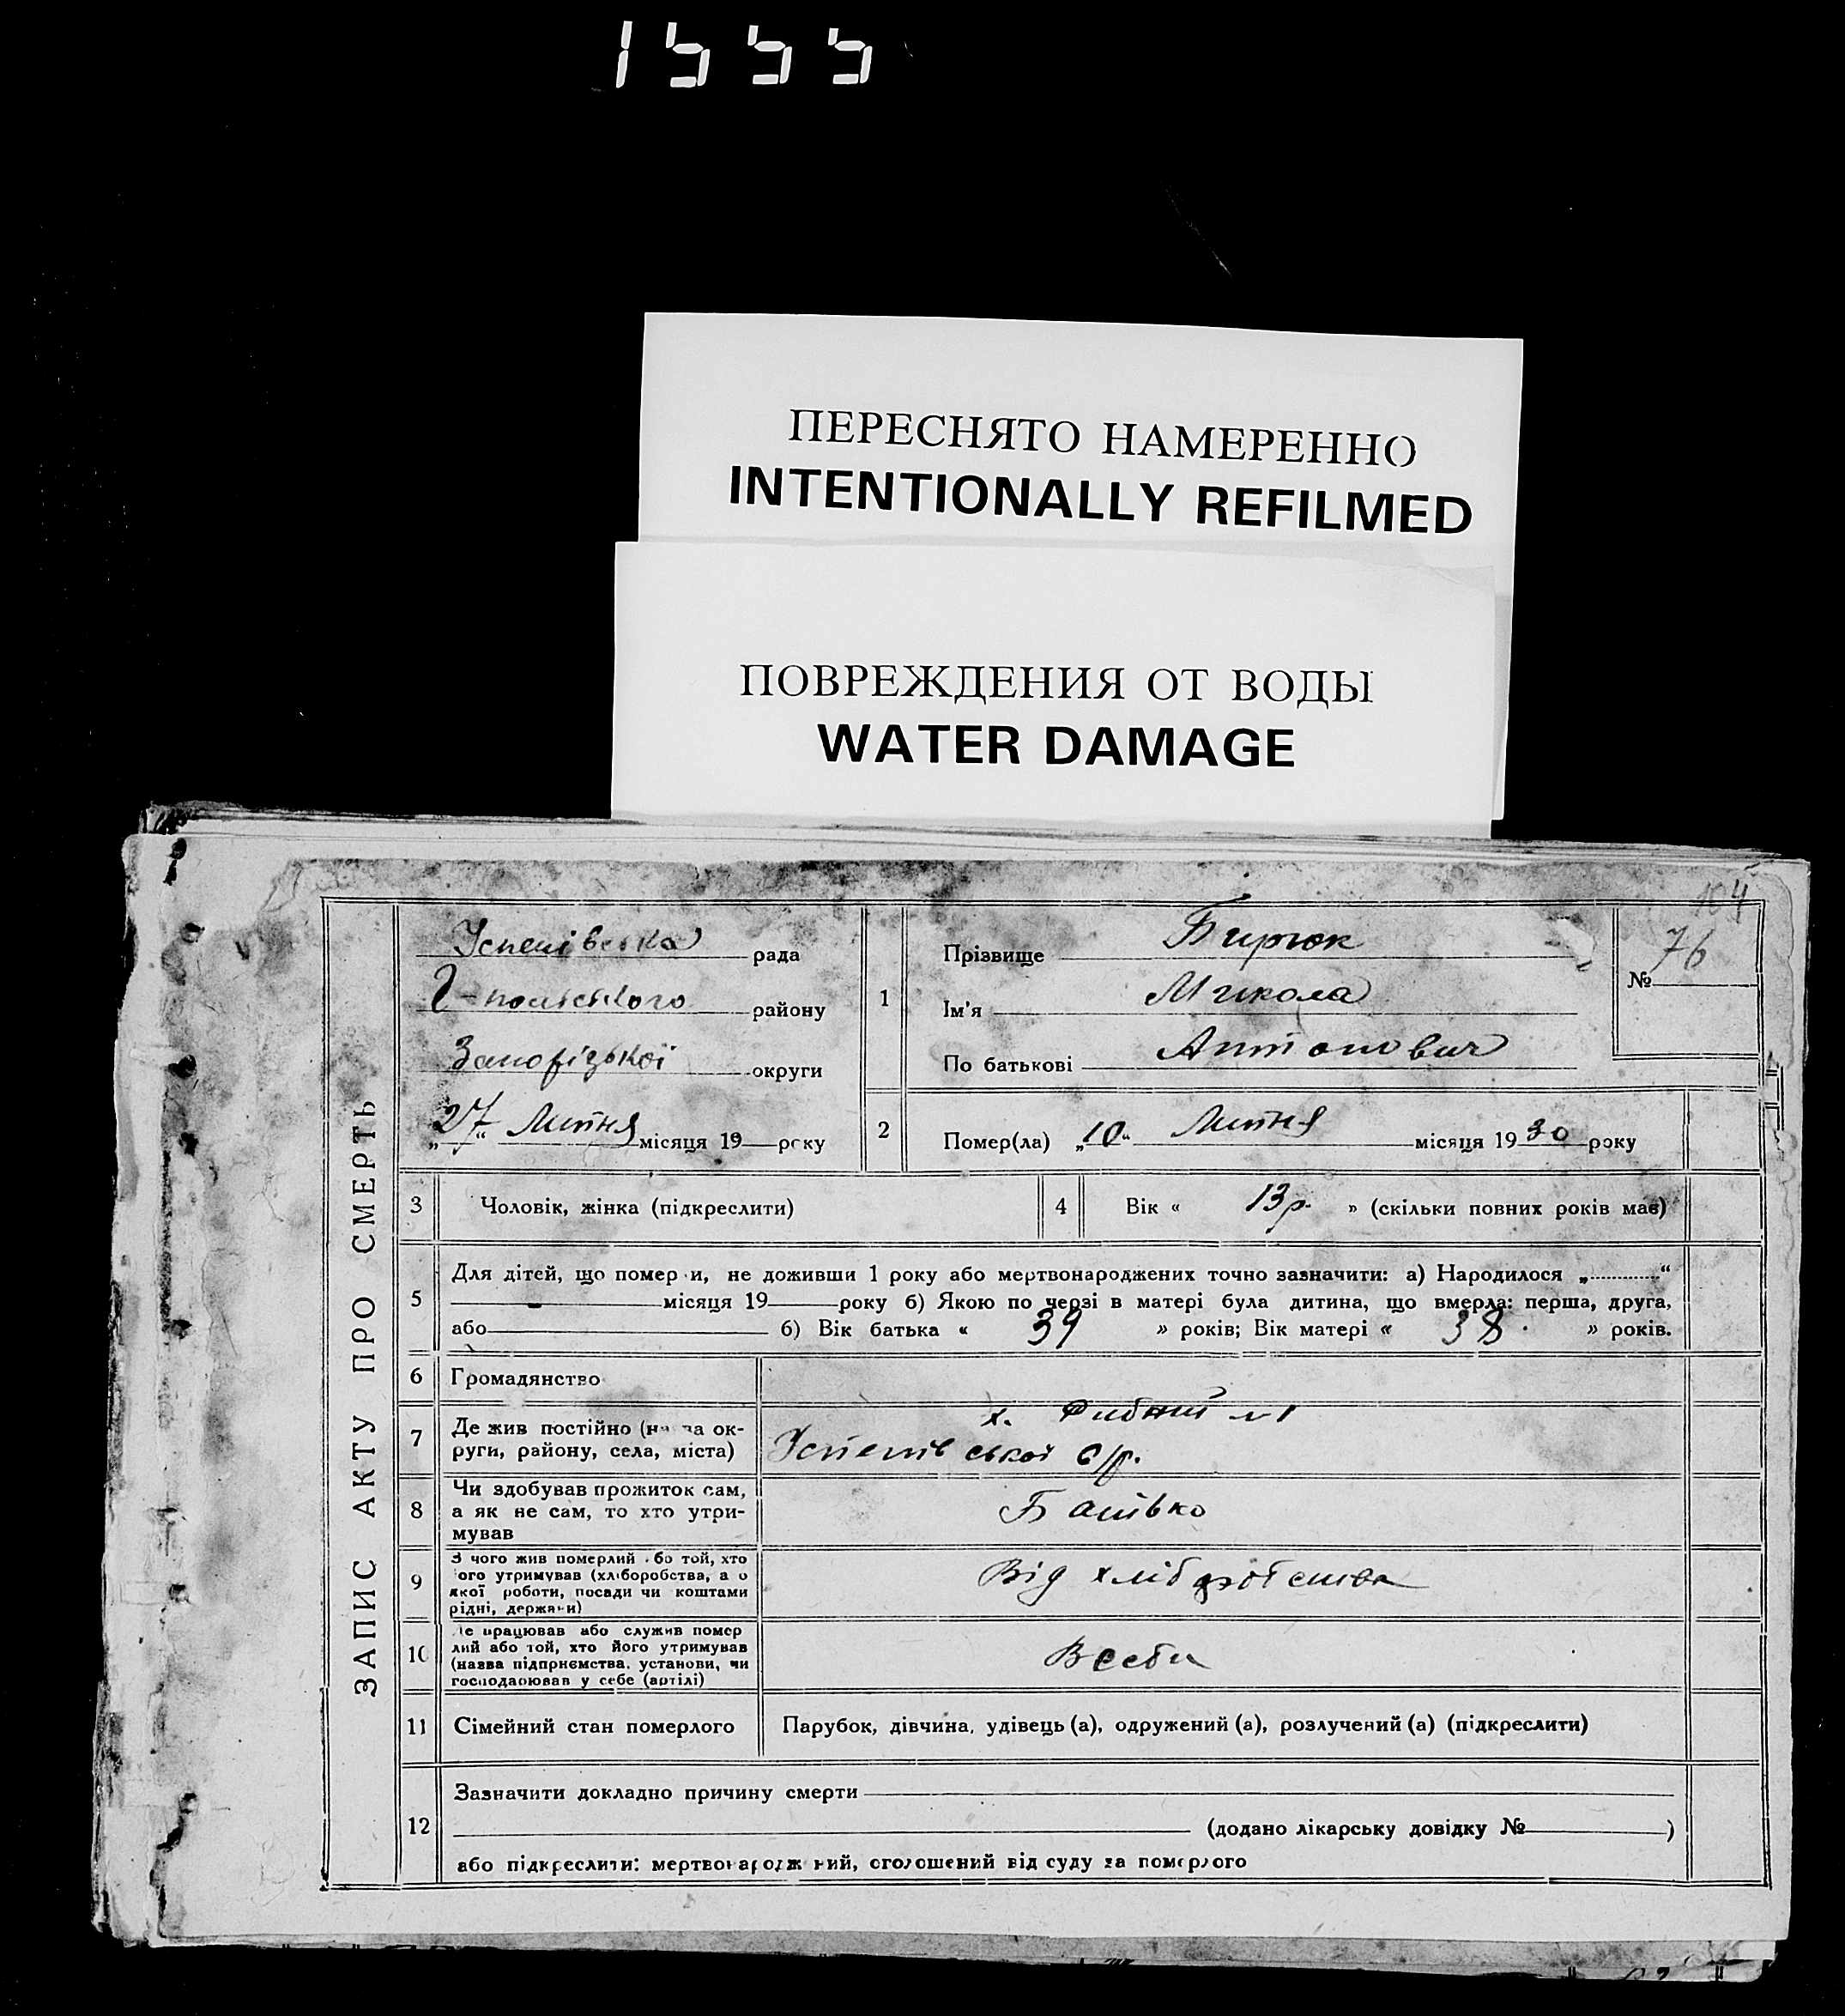 1555
ПЕРЕСНЯТО НАМЕРЕННО
INTENTIONALLY REFILMED
ПОВРЕЖДЕНИЯ ОТ ВОДЫ
WATER DAMAGE
104
ЗАПИС АКТУ ПРО СМЕРТЬ
Успенівська рада
району
Запорізької округи
„27“ Липня місяця 19 року
1
Прізвище Бирюк
Ім'я Микола
По батькові Антонович
№ 76
2
Помер(ла) „10“ Липня місяця 1930 року
3 Чоловік, жінка (підкреслити)
4 Вік « 13 р. » (скільки повних років має)
5
Для дітей, що помер и, не доживши 1 року або мертвонароджених точно зазначити: а) Народилося „ “
місяця 19 року б) Якою по черзі в матері була дитина, що вмерла: перша, друга,
або б) Вік батька « 39 » років; Вік матері « 38. » років.
6 Громадянство
7 Де жив постійно (н ва ок-
руги, району, села, міста)
х. №1
Успенівської с/р.
8 Чи здобував прожиток сам,
а як не сам, то хто утри-
мував
Батько
9 З чого жив померлий бо той, хто
ого утримував (хліборобства, а о
якої роботи, посади чи коштами
рідні, держави)
Від хліборобства
10 е працював або служив помер
лий або той, хто його утримував
(назва підприємства, установи, чи
господарював у себе (артілі)
Всеби
11 Сімейний стан померлого
Парубок, дівчина, удівець (а), одружений (а), розлучений (а) (підкреслити)
12
Зазначити докладно причину смерти
(додано лікарську довідку № )
або підкреслити: мертвонародж ний, оголошений від суду за померлого